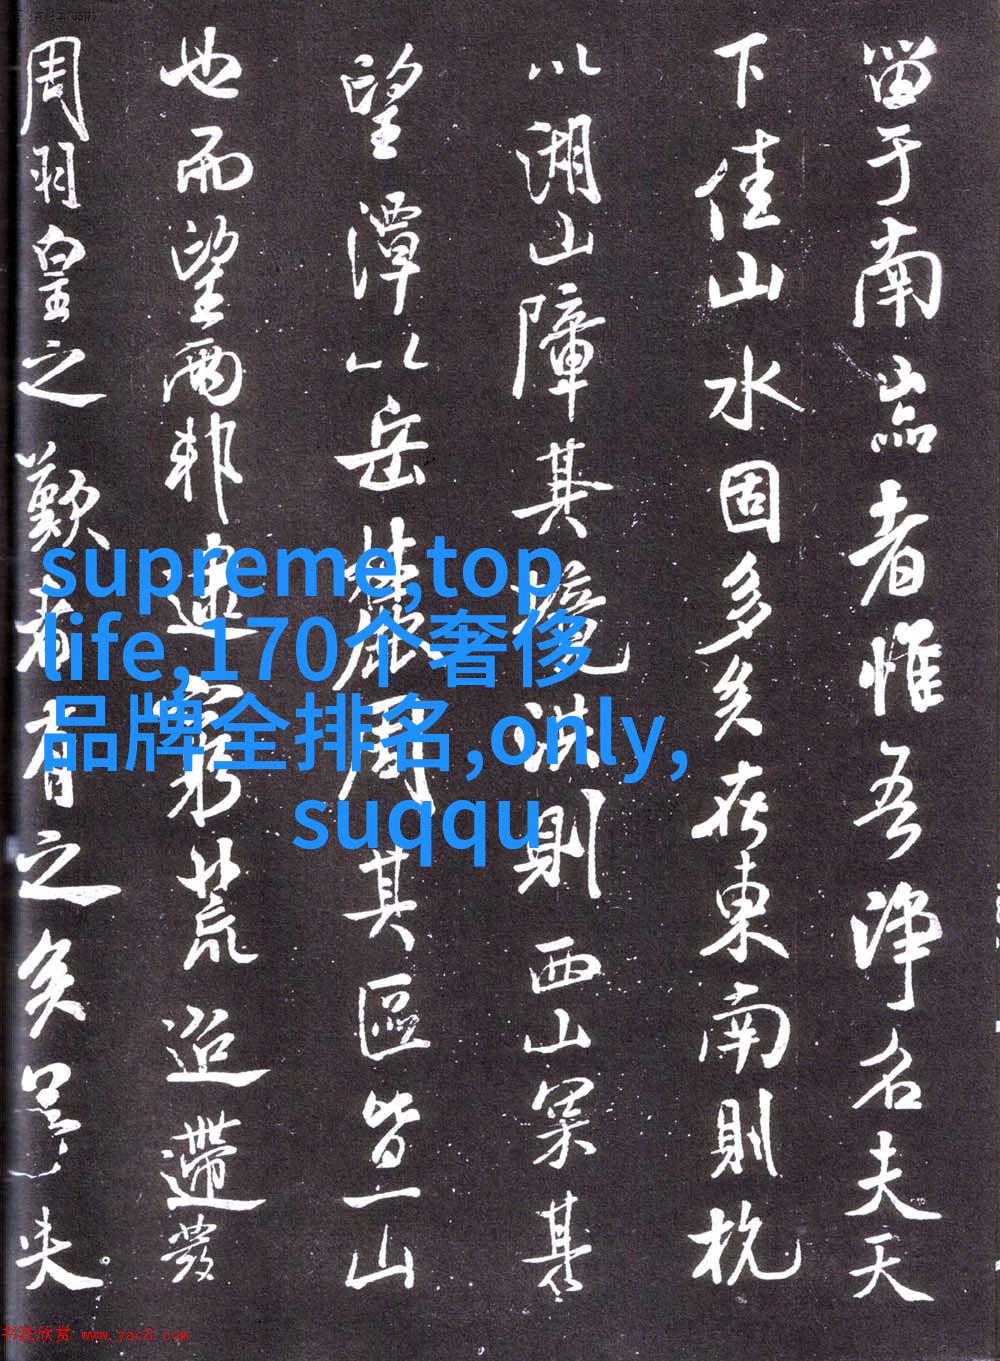 留于南嵓者惟吾浄名夫天
下佳山水固多矣在東南則杭
以湖山障其境洪則西山冥其
望潭以岳麓周其區皆一山
也而望兩邦逮窮荒迢遰發
周羽皇之歎者有之矣夫
supreme,top
life,170个奢侈
品牌全排名,only,
suqqu
书法欣赏 www.yac8.com